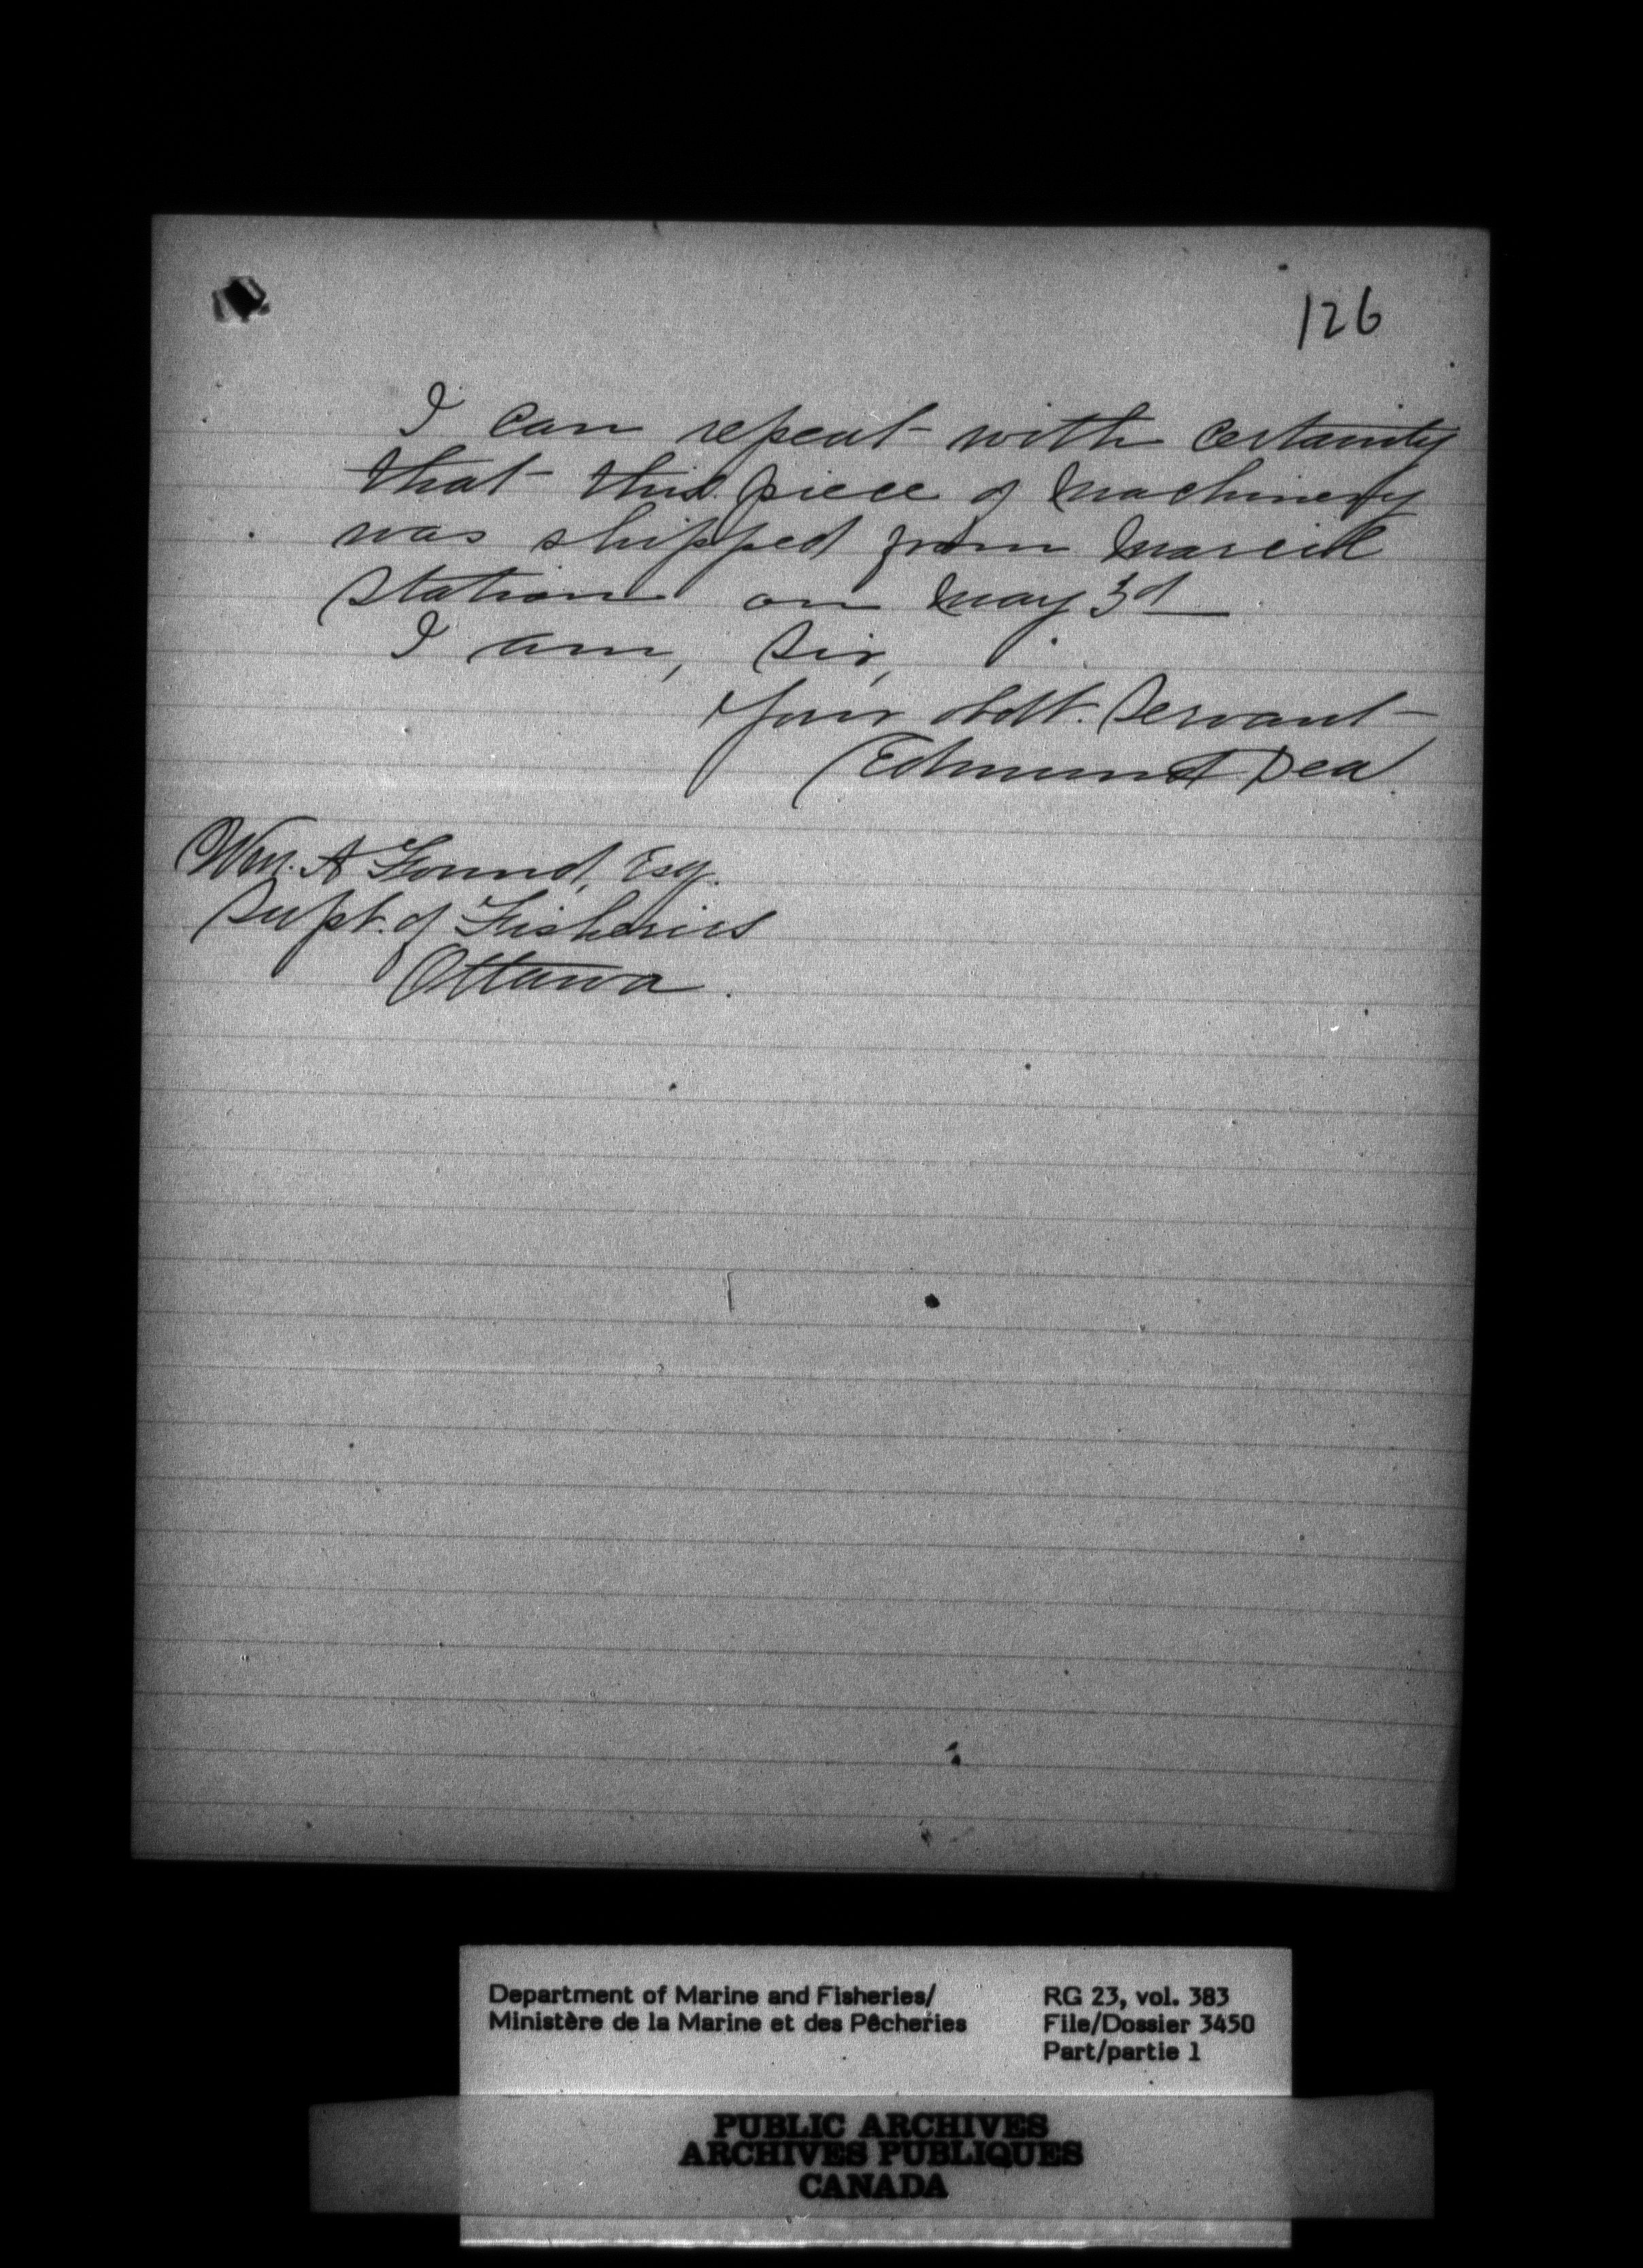 126
I can repeat with certainty
that this piece of machinery
was shipped from Marcil
Station on May 3d
I am, Sir,
Your obdt. Servant
Edmund Dea
Wm. A Found, Esq.
Supt. of Fisheries
Ottawa.
Department of Marine and Fisheries/
Ministère de la Marine et des Pêcheries
RG 23, vol. 383
File/Dossier 3450
Part/partie 1
PUBLIC ARCHIVES
ARCHIVES PUBLIQUES
CANADA